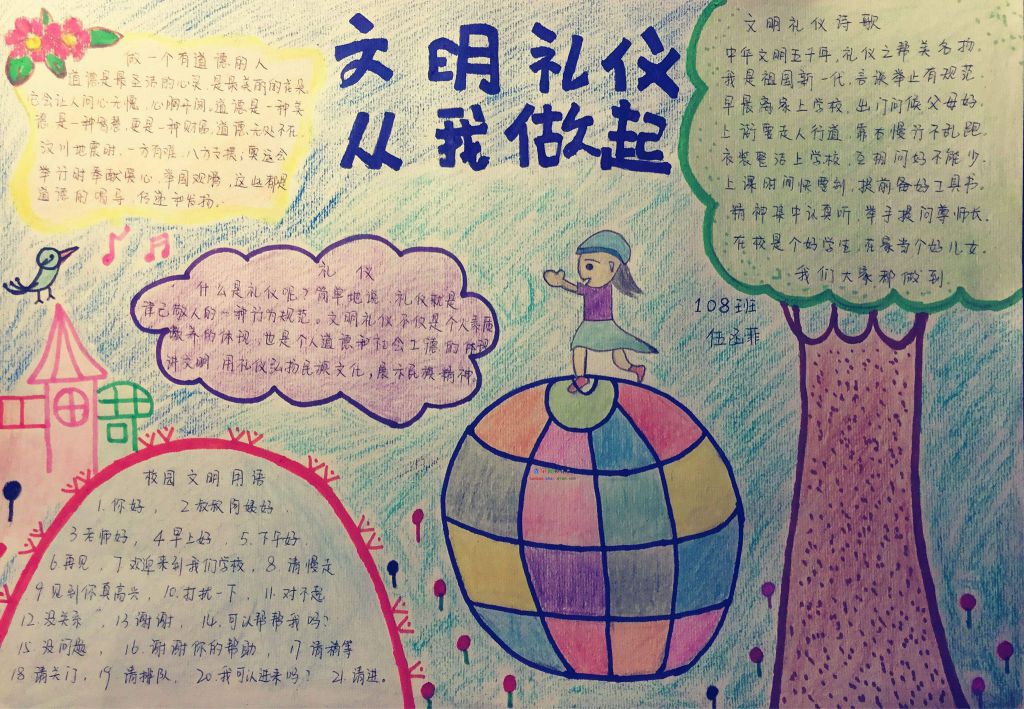 文明礼仪
从我做起
做一个有道德的人
道德是最圣洁的心灵,是最美丽的花朵,
它会让人问心无愧,心胸开阔,道德是一种美
德是一种智慧,更是一种财富,道德无处不在,
汶川地震时,一方有难,八方支援;奥运会
举行时奉献爱心,举国欢唱,这些都是
道德的
传递和发扬。
文明礼仪诗歌
中华文明五千年,礼仪之帮美名扬.
我是祖国新一代,言谈举止有规范.
早晨离家上学校,出门问候父母好.
上街要走人行道,靠右慢行不乱跑.
衣装整洁上学校,互相问好不能少.
上课时间快要到,提前备好工具书.
精神集中认真听,举手提问尊师长.
在校是个好学生,在家当个好儿女.
我们大家都做到.
礼仪
什么是礼仪呢?简单地说,礼仪就是
律己敬人的一种行为规范。文明礼仪不仅是个人素质
教养的体现,也是个人道德和社会公德的体现
讲文明 用礼仪弘扬民族文化,展示民族精神。
108班
伍函菲
校园文明用语
1.你好, 2.叔叔阿姨好.
3.老师好, 4.早上好, 5.下午好.
6.再见, 7.欢迎来到我们学校, 8.请慢走
9.见到你真高兴, 10.打扰一下, 11.对不起
12.没关系, 13.谢谢, 14.可以帮帮我吗?
15.没问题, 16.谢谢你的帮助, 17.请稍等
18.请关门, 19.请排队, 20.我可以进来吗? 21.请进。